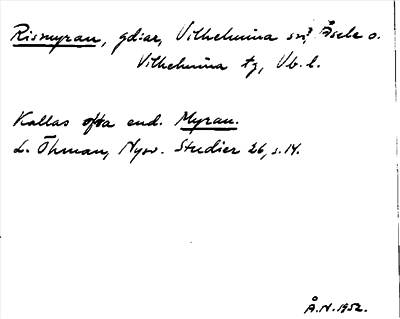 Rismyran, gdiar, Vilhelmina sn, Åsele o.
Vilhelmina tg, Vb. l.
Kallas ofta end. Myran.
L. Öhman, Nysv. Studier 26, s. 14.
Å.N. 1952.